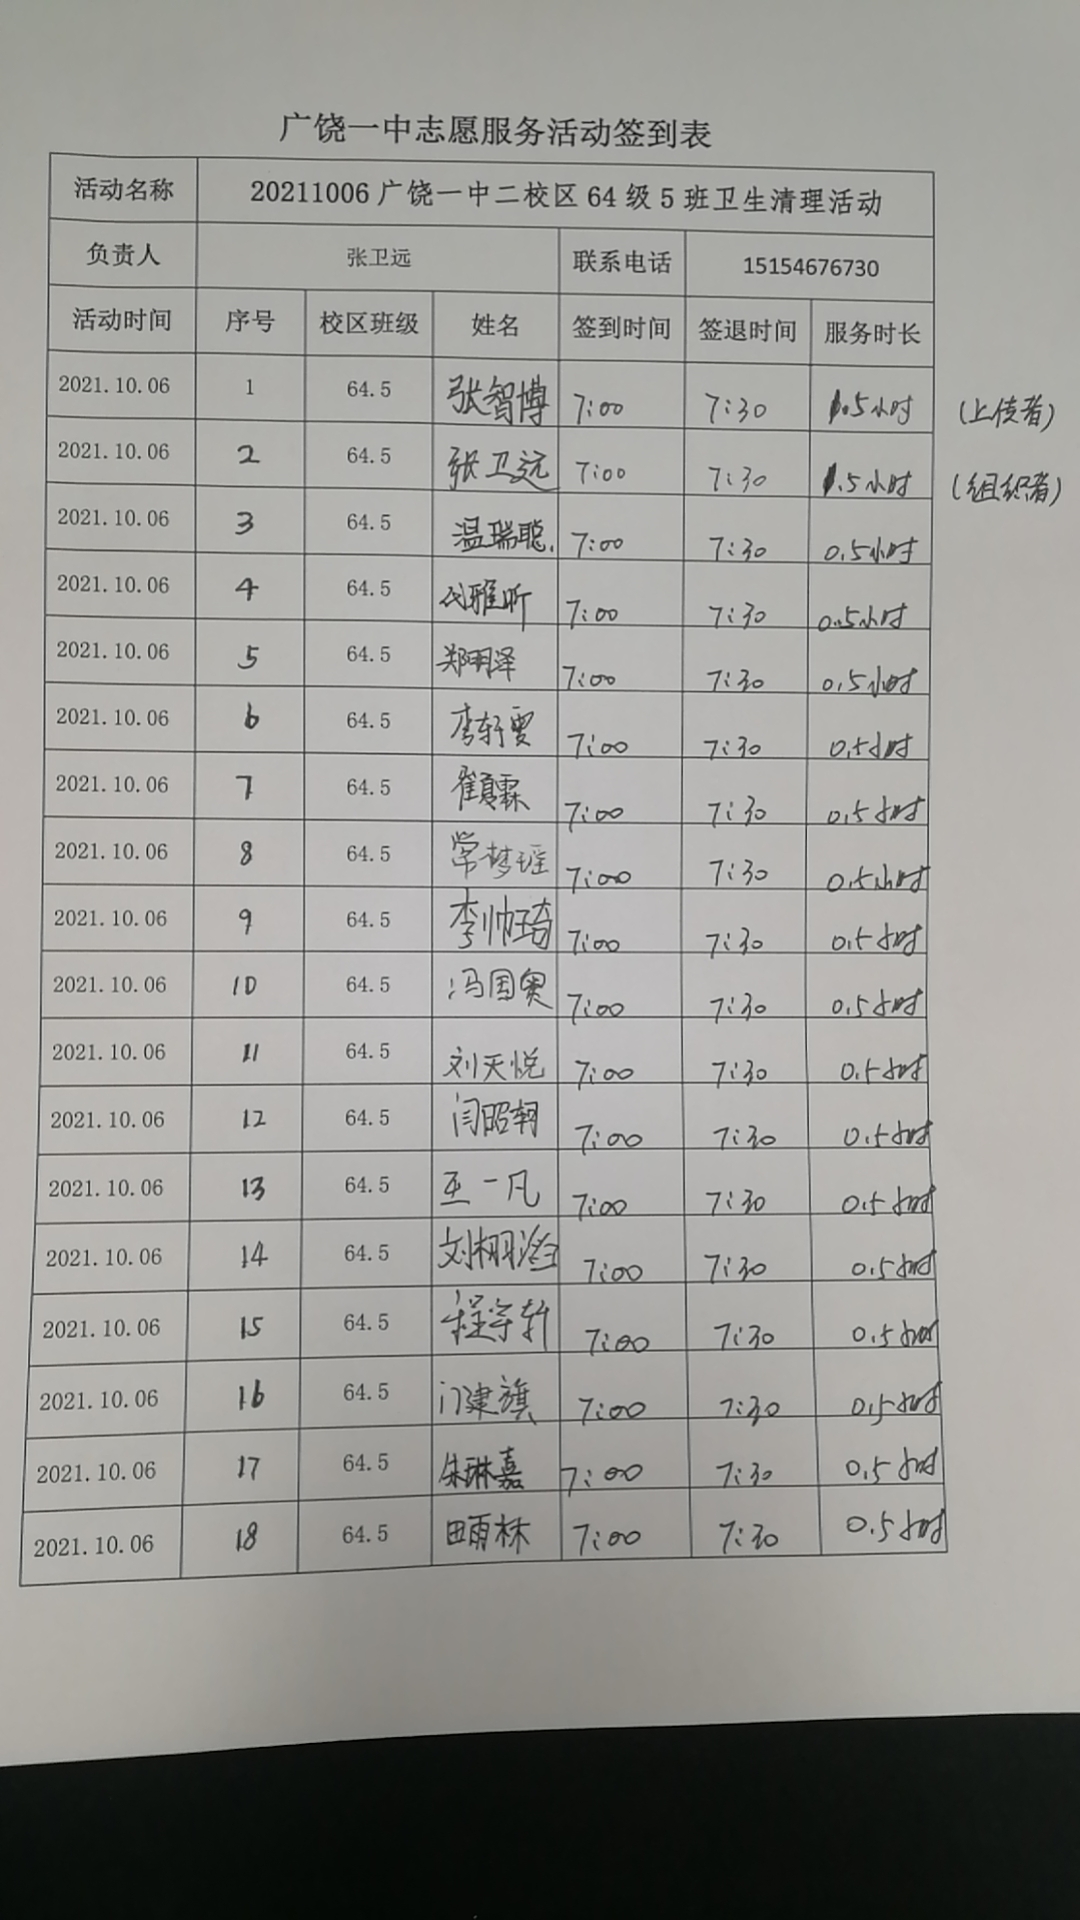 广饶一中志愿服务活动签到表
活动名称 20211006广饶一中二校区64级5班卫生清理活动
负责人 张卫远 联系电话 15154676730
活动时间 序号 校区班级 姓名 签到时间 签退时间 服务时长
2021.10.06 1 64.5 张智博 7:00 7:30 1.5小时 (上传者)
2021.10.06 2 64.5 张卫远 7:00 7:30 1.5小时 (组织者)
2021.10.06 3 64.5 温瑞聪 7:00 7:30 0.5小时
2021.10.06 4 64.5 代雅昕 7:00 7:30 0.5小时
2021.10.06 5 64.5 郑明泽 7:00 7:30 0.5小时
2021.10.06 6 64.5 李轩雯 7:00 7:30 0.5小时
2021.10.06 7 64.5 崔夏霖 7:00 7:30 0.5小时
2021.10.06 8 64.5 常梦瑶 7:00 7:30 0.5小时
2021.10.06 9 64.5 李帅琦 7:00 7:30 0.5小时
2021.10.06 10 64.5 冯国奥 7:00 7:30 0.5小时
2021.10.06 11 64.5 刘天悦 7:00 7:30 0.5小时
2021.10.06 12 64.5 闫昭朝 7:00 7:30 0.5小时
2021.10.06 13 64.5 王一凡 7:00 7:30 0.5小时
2021.10.06 14 64.5 7:00 7:30 0.5小时
2021.10.06 15 64.5 程宇轩 7:00 7:30 0.5小时
2021.10.06 16 64.5 门建旗 7:00 7:30 0.5小时
2021.10.06 17 64.5 朱琳嘉 7:00 7:30 0.5小时
2021.10.06 18 64.5 田雨林 7:00 7:30 0.5小时